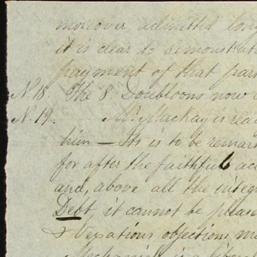 moreover admitted long
it is clear to demonstrat
payment of that par
No 18. The 8 Doubloons now
No 19. Mr Mackay is rea
him — It is to be remar
for after the faithful ac
and, above all the integr
Debt, it cannot be pleas
& Vexatious objections, m